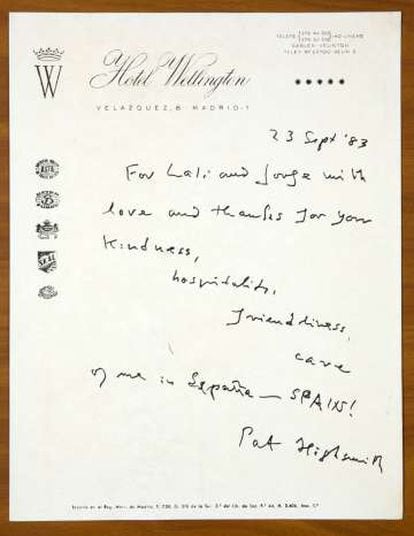 W
Hotel Wellington
VELAZQUEZ, 8 MADRID-1
23 Sept '83
For Lali and Jorge with
love and thanks for your
kindness,
hospitality,
friendliness,
care
of me in España — SPAIN!
Pat Highsmith